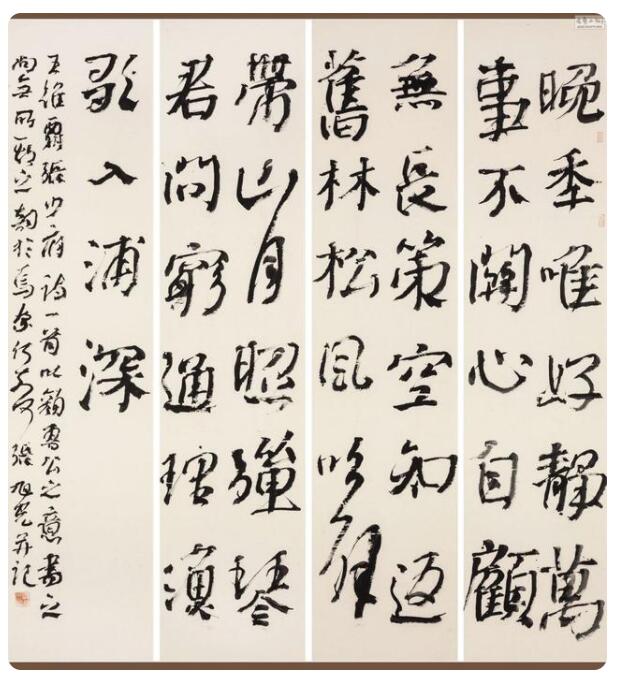 晚秊唯好靜萬
事不關心自顧
無長策空知返
舊林松風吹解
帶山月照彈琴
君問窮通理漁
歌入浦深
王維酬張少府詩一首以顏魯公之意書之
尚無所之於奈何張旭光并記